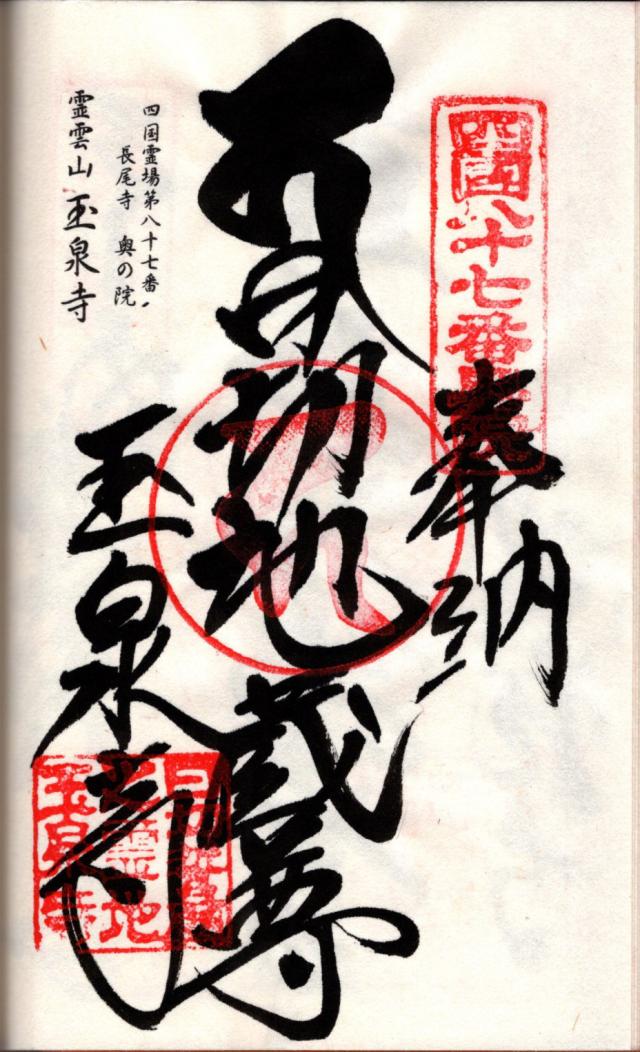 四国八十七番
奉納
日切地蔵尊
四国霊場第八十七番
長尾寺 奥の院
霊雲山 玉泉寺
玉泉寺
霊地
玉泉寺